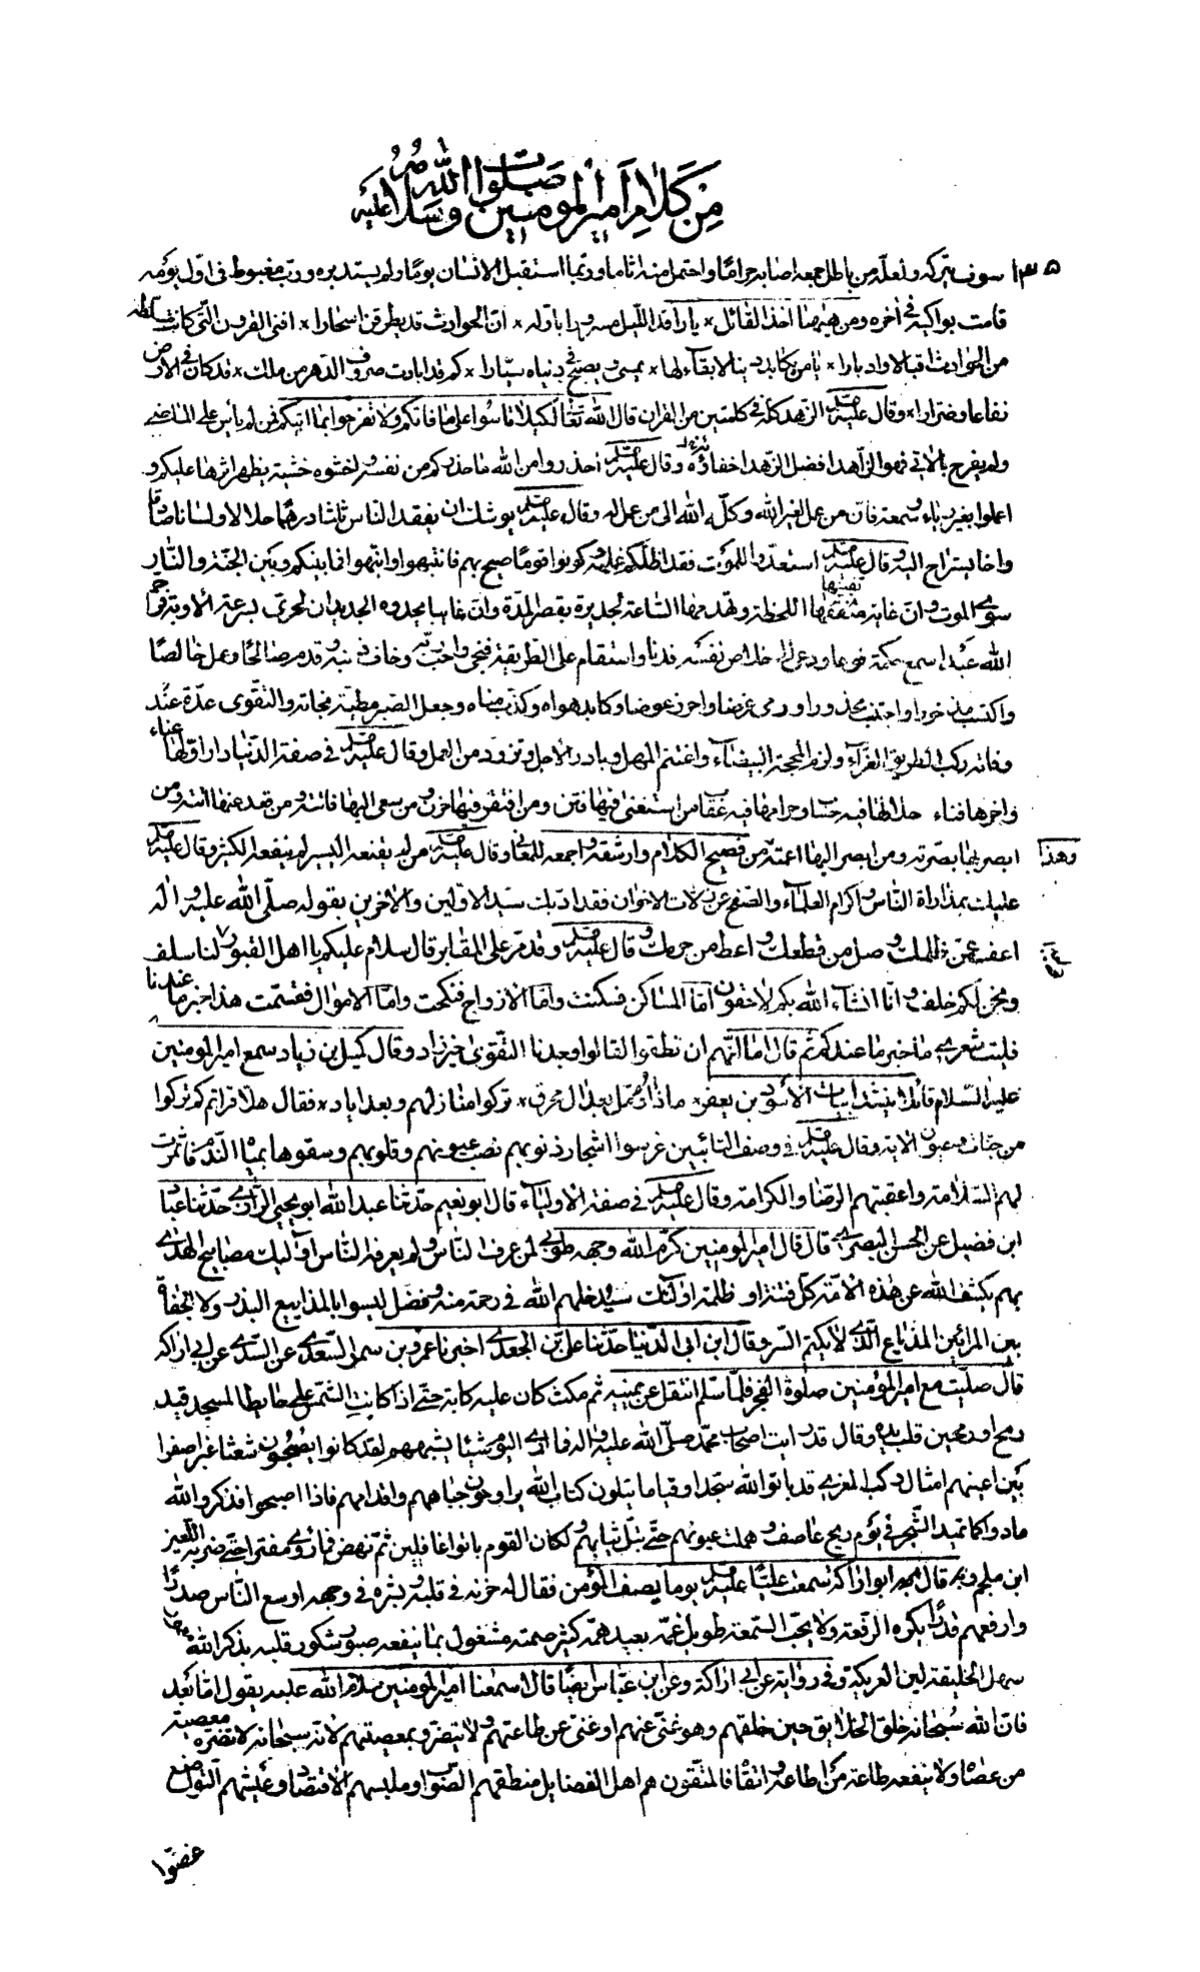 من كلام امير المومنين صلوات الله وسلامه عليه
١٣٥ سوف يتركه ولعله من باطل جمعه اصابه حراما واحتمل منه اثاما وربما استقبل الانسان يوما ولم يستدبره ورب مغبوط فى اول يومه
قامت بواكيه فى اخره ومن هيهنا اخذ القائل × يا راقد الليل مسرورا باوله × ان الحوادث قد يطرقن اسحارا × افنى القرون التى كانت مسلطه
من الحوادث اقبالا وادبارا × يا من يكابد دينا لا بقاء لها × يمسى ويصبح فى دنياه سيارا × كم قد ابادت صروف الدهر من ملك × قد كان فى الارض
نفاعا وضرارا × وقال عليه الزهد كله فى كلمتين من القران قال الله تعالى لكيلا تاسوا على ما فاتكم ولا تفرحوا بما اتيكم فمن لم يأس على الماضى
ولم يفرح بالاتى فهو الزاهد افضل الزهد اخفاؤه وقال عليه احذروا من الله ما حذركم من نفسه واخشوه خشية يظهر اثرها عليكم و
اعملوا بغير رياء وسمعة فان من عمل لغير الله وكله الله الى من عمل له وقال عليه يوشك ان يفقد الناس ثلثا درهما حلالا ولسانا صادقا
واخا يستراح اليه وقال عليه استعدوا للموت فقد اظلكم غمامه وكونوا قوما صيح بهم فانتبهوا وانتهوا فما بينكم وبين الجنة والنار
سوى الموت وان غاية تنقصها اللحظة وتهدمها الساعة لجديرة بقصر المدة وان غايبا يحدوه الجديدان لحرى بسرعة الاوبة فرحم
الله عبدا سمع حكمة فوعا ودعى الى خلاص نفسه فدنا واستقام على الطريقة فنجى واحب ربه وخاف ذنبه وقدم صالحا وعمل خالصا
واكتسب مذخورا واجتنب محذورا ورمى غرضا واحرز عوضا وكابد هواه وكذب مناه وجعل الصبر مطية نجاته والتقوى عدة عند
وفاته ركب الطريق الغراء ولزم المحجة البيضاء واغتنم المهل وبادر الاجل وتزود من العمل وقال عليه فى صفة الدنيا دار اولها عناء
واخرها فناء حلالها فيه حساب وحرامها فيه عقاب من استغنى فيها فتن ومن افتقر فيها حزن ومن سعى اليها فاتته ومن قعد عنها اتته ومن
ابصر بها بصرته ومن ابصر اليها اعمته من فصيح الكلام وارشقه واجمعه للمعانى وقال عليه من لم يقنعه اليسير لم ينفعه الكثير وقال عليه
وهذا
عليك بمداراة الناس واكرام العلماء والصفح عن زلات الاخوان فقد ادبك سيد الاولين والاخرين بقوله صلى الله عليه واله
اعف عمن ظلمك وصل من قطعك واعط من حرمك وقال عليه وقد مر على المقابر قال سلام عليكم يا اهل القبور لنا سلف
ونحن لكم خلف وانا انشاء الله بكم لاحقون اما المساكن فسكنت واما الازواج فنكحت واما الاموال فقسمت هذا خبر ما عندنا
فليت شعرى ما خبر ما عندكم ثم قال اما انهم ان نطقوا لقالوا وجدنا التقوى خير زاد وقال كميل بن زياد سمع امير المومنين
عليه السلام قائلا ينشد ابيات الاسود بن يعفر × ماذا اؤمل بعد ال محرق × تركوا منازلهم وبعد اياد × فقال هلا قراتم كم تركوا
من جنات وعيون الاية وقال عليه فى وصف التائبين غرسوا اشجار ذنوبهم نصب عيونهم وقلوبهم وسقوها بمياه الندم فاثمرت
لهم السلامة واعقبتهم الرضا والكرامة وقال عليه فى صفة الاولياء قال ابو نعيم حدثنا عبد الله ابو يحيى الرازى حدثنا عباد
ابن فضيل عن الحسن البصرى قال قال امير المومنين كرم الله وجهه طوبى لمن عرف الناس ولم يعرفه الناس اوليك مصابيح الهدى
بهم يكشف الله عن هذه الامة كل فتنة او ظلمة اولئك سيدخلهم الله فى رحمة منه وفضل ليسوا بالمذاييع البذر ولا الجفاة
يعن المرائين المذياع الذى لا يكتم السر وقال ابن ابى الدنيا حدثنا على بن الجعدى اخبرنا عمرو بن سمر السعدى عن السدى عن ابى اراكه
قال صليت مع امير المؤمنين صلوة الفجر فلما سلم انتقل عن يمينه ثم مكث كان عليه كابة حتى اذا كانت الشمس على حايط المسجد قيد
رمح او رمحين قلب يده وقال قد رايت اصحاب محمد صلى الله عليه واله فما ارى اليوم شيئا يشبههم لقد كانوا يصبحون شعثا غبرا صفرا
بين اعينهم امثال ركب المعزى قد باتوا لله سجدا وقياما يتلون كتاب الله يراوحون جباههم واقدامهم فاذا اصبحوا فذكروا الله
مادوا كما تميد الشجر فى يوم ريح عاصف وهملت عيونهم حتى تبل ثيابهم ولكان القوم باتوا غافلين ثم نهض فما رؤى مفترا حتى ضربه اللعين
ابن ملجم وبه قال ابو اراكة سمعت عليا عليه يوما يصف المؤمن فقال له حزنه فى قلبه وبشره فى وجهه اوسع الناس صدرا
وارفعهم قدرا يكره الرفعة ولا يحب السمعة طويل غمه بعيد همه كثير صمته مشغول بما ينفعه صبور شكور قلبه بذكر الله
سهل الخليقة لين العريكة وفى رواية عن ابى اراكة وعن ابن عباس ايضا قالا سمعنا امير المومنين سلام الله عليه يقول اما بعد
فان الله سبحانه خلق الخلايق حين خلقهم وهو غنى عنهم او غنى عن طاعتهم ولا يتضر وبمعصيتهم لانه سبحانه لا تضره معصية
من عصاه ولا ينفعه طاعة من اطاعه واتقاه فالمتقون هم اهل الفضايل منطقهم الصواب وملبسهم الاقتصاد وعيشهم التواضع
غضوا